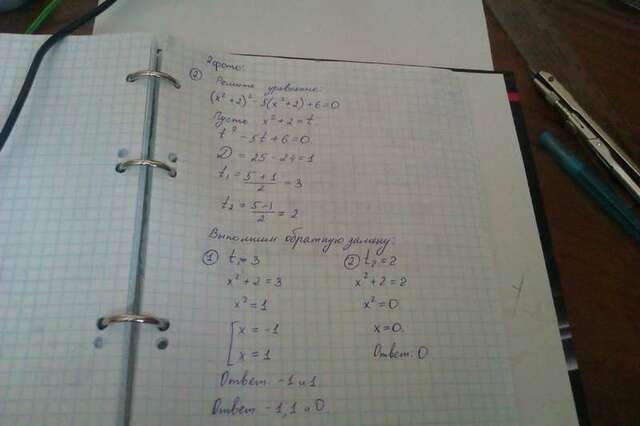 2 фото:
② Решите уравнение:
(x² + 2)² - 5(x² + 2) + 6 = 0
Пусть x² + 2 = t
t² - 5t + 6 = 0
D = 25 - 24 = 1
t₁ = (5 + 1)/2 = 3
t₂ = (5 - 1)/2 = 2
Выполним обратную замену:
① t₁ = 3
x² + 2 = 3
x² = 1
[ x = -1
x = 1
Ответ: -1 и 1
② t₂ = 2
x² + 2 = 2
x² = 0
x = 0.
Ответ: 0
Ответ -1, 1 и 0